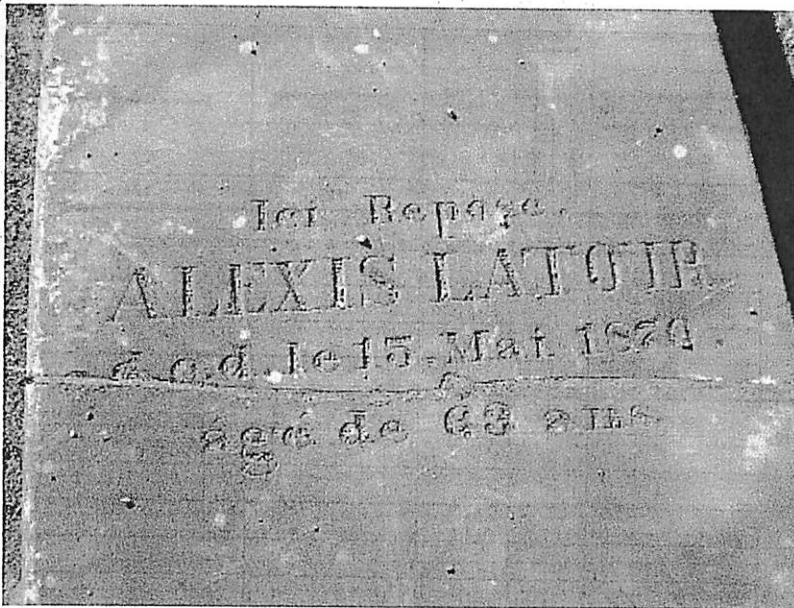 Ici Repose.
ALEXIS LATOIR
le 15. Mai 1870
agé de 63 ans.